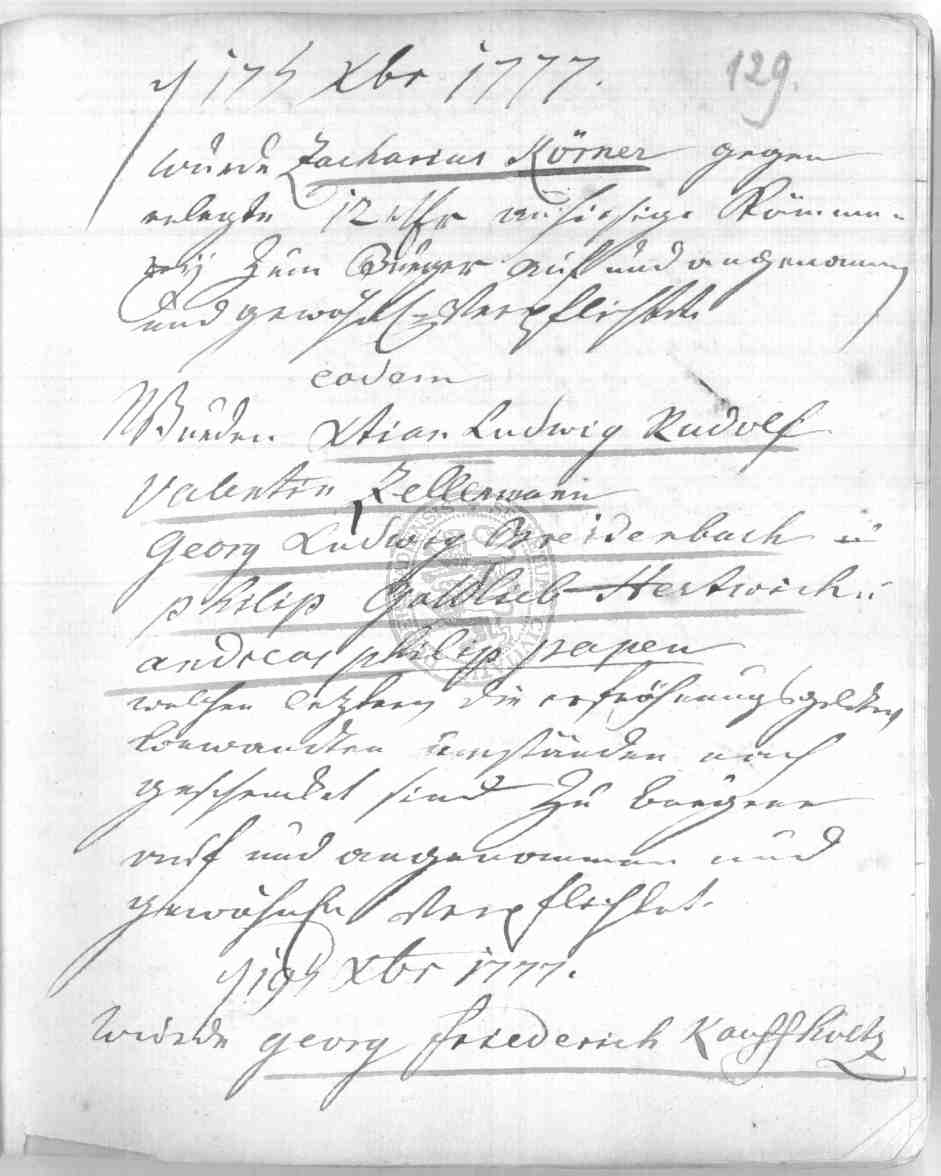 d 17t Xbr 1777.
129.
wurde Zacharias Körner gegen
erlegte 12 auf hiesige Kämme-
rey zum Bürger auf und angenommen
und gewöhnl. verpflichtet.
eodem
Wurden Xtian Ludwig Rudolf
Valentin Zellermann
Georg Ludwig Breidenbach u
philip Gottlieb Hertwich u
andreas philip papen
welchen letztern die
bewandten umständen nach
geschencket sind zu bürgern
auf und angenommen und
gewöhnl. verpflichtet.
d 19t Xbr 1777.
wurde georg friederich Kauffholtz